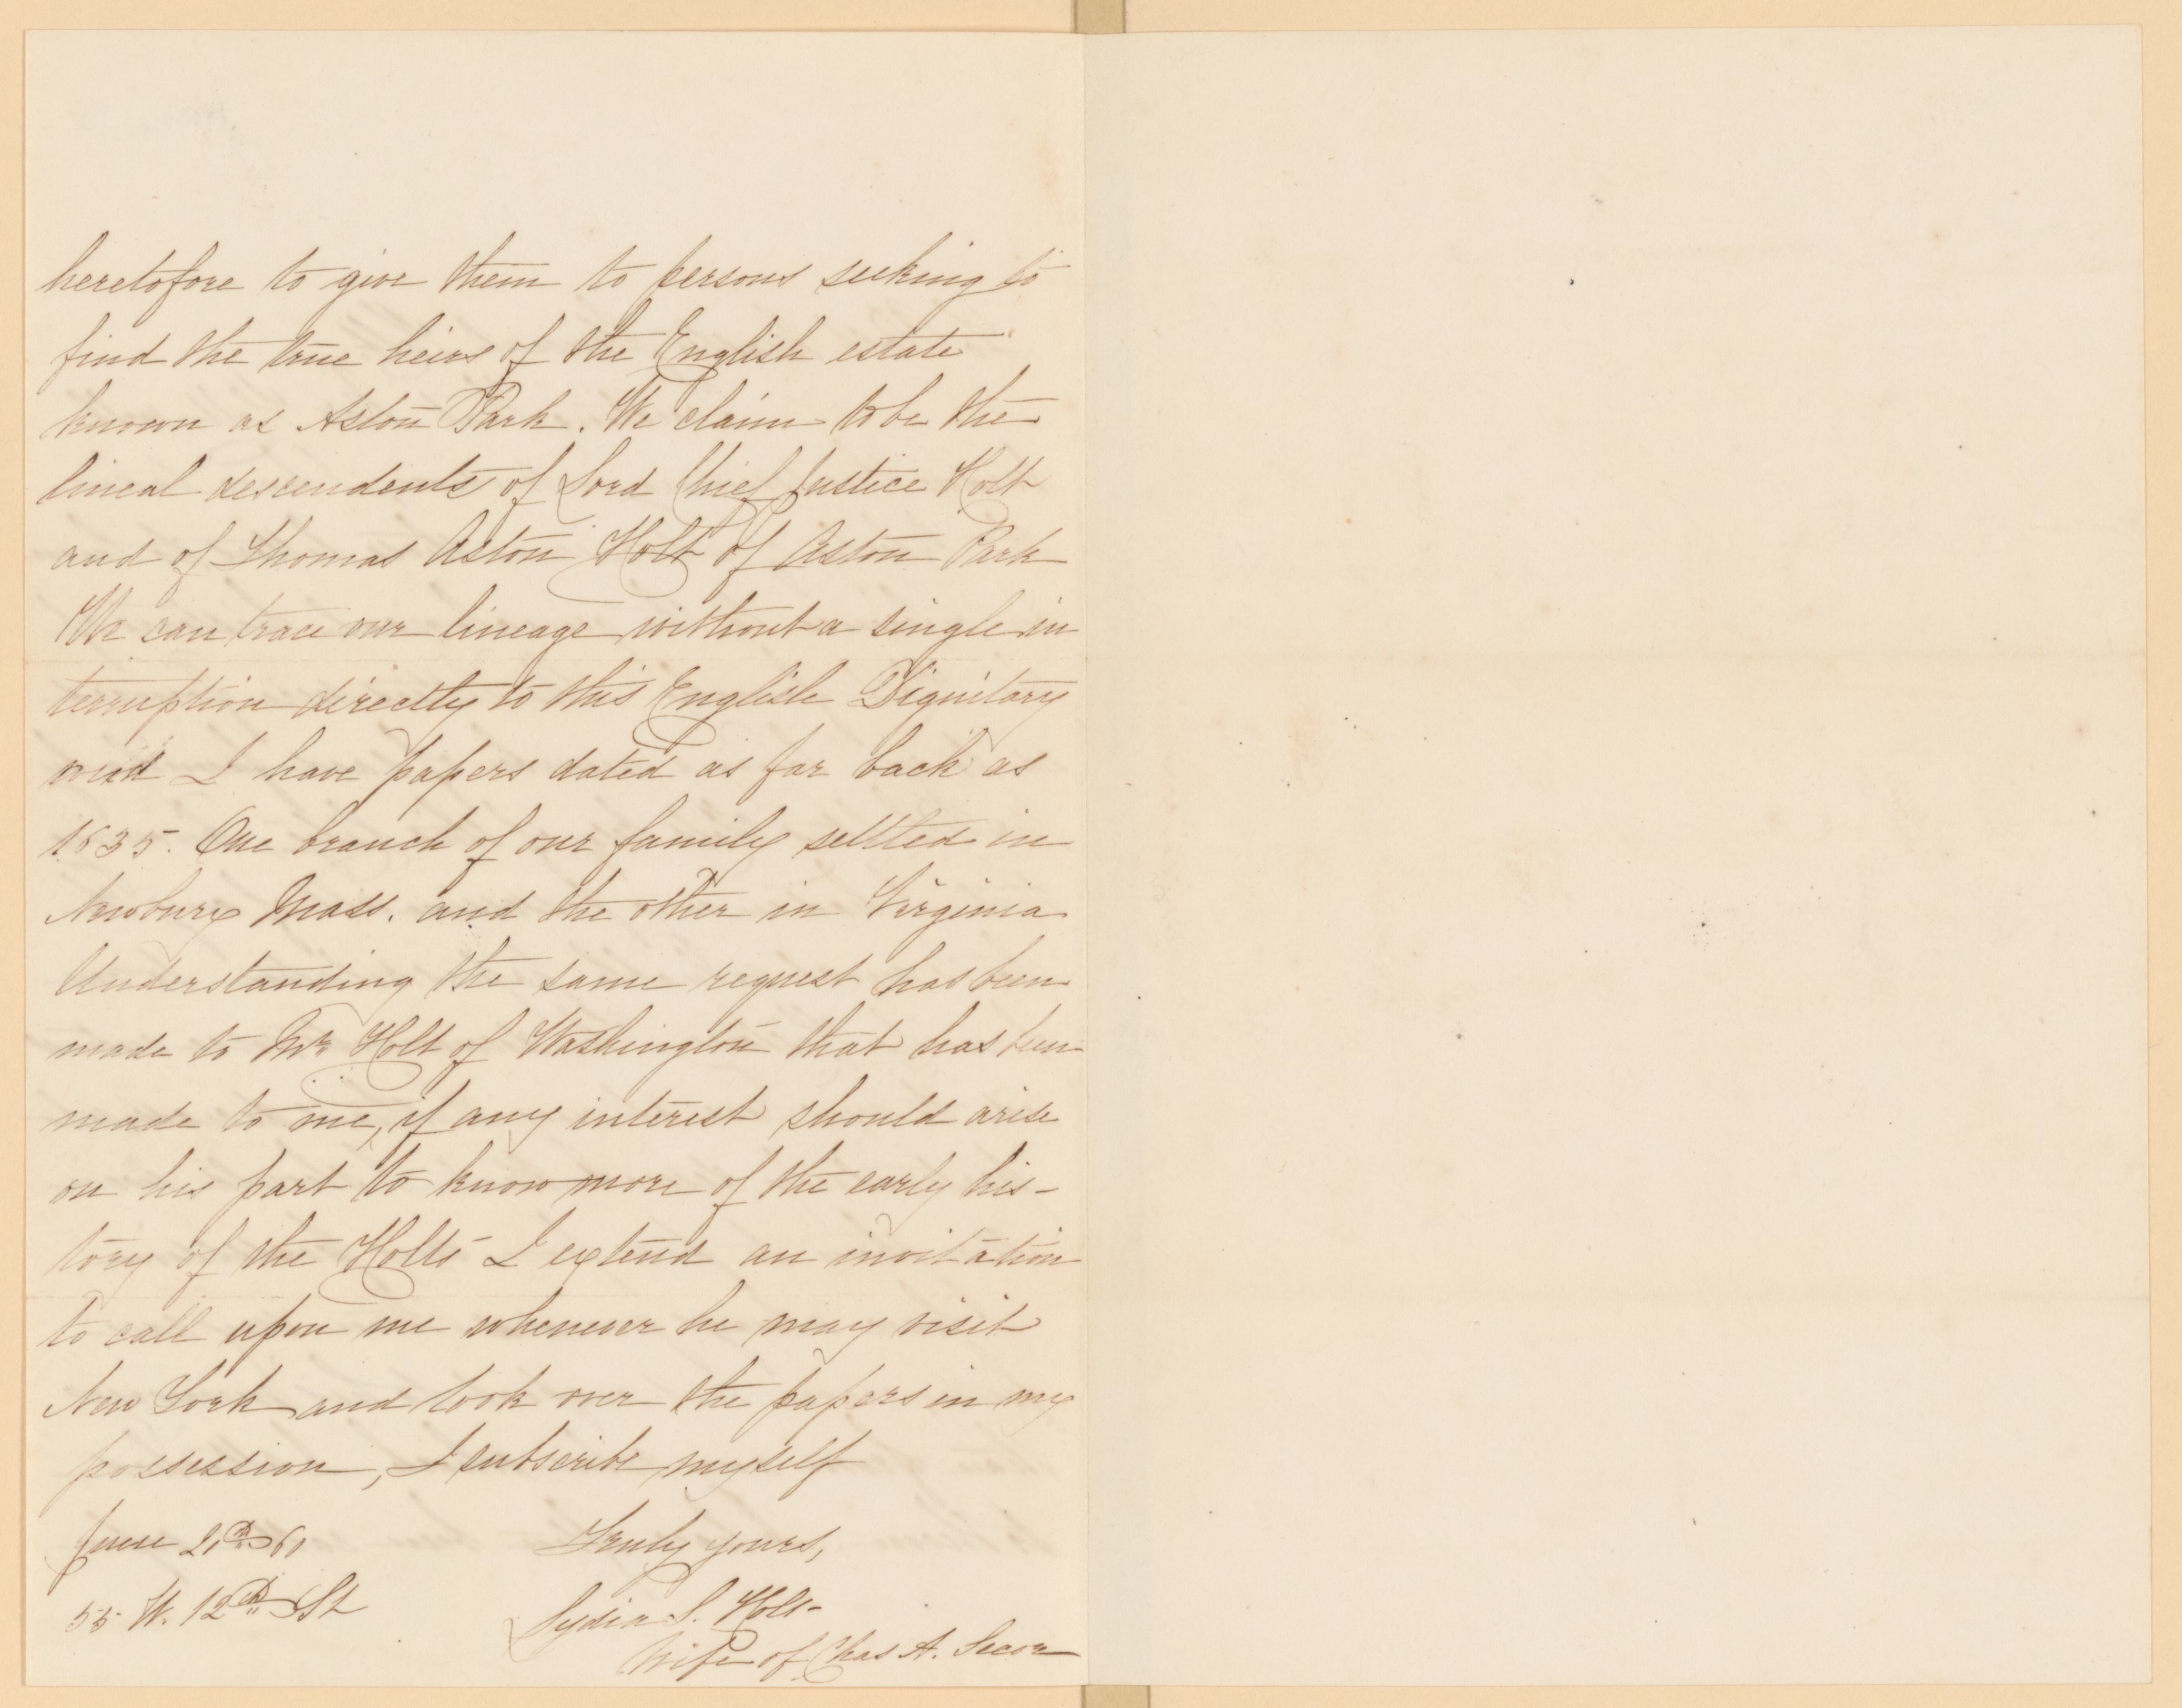 heretofore to give them to persons seeking to
find the true heirs of the English estate
known as Aston Park. We claim to be the
lineal descendents of Lord Chief Justice Holt
and of Thomas Aston Holt of Aston Park
We can trace our lineage without a single in
terruption directly to this English Dignitary
and I have papers dated as far back as
1635. One branch of our family settled in
Newbury Mass. and the other in Virginia
Understanding the same request has been
made to Mr Holt of Washington that has been
made to me, if any interest should arise
on his part to know more of the early his-
tory of the Holts I extend an invitation
to call upon me whenever he may visit
New York and look over the papers in my
possession, I subscribe myself
June Truly yours,
55 W. 12th St Lydia S. Holt
Wife of Chas A. Secor